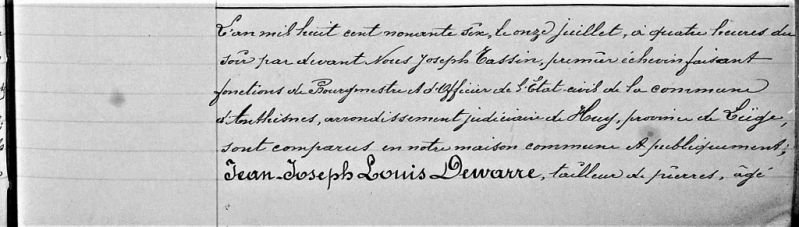 L'an mil huit cent nonante six, le onze juillet, à quatre heures du
soir par devant Nous Joseph Tassin, premier échevin faisant
fonctions de Bourgmestre et d'Officier de l'État-civil de la commune
d'Anthisnes, arrondissement judiciaire de Huy, province de Liège,
sont comparus en notre maison commune et publiquement;
Jean-Joseph Louis Dewarre, tailleur de pierres, âgé